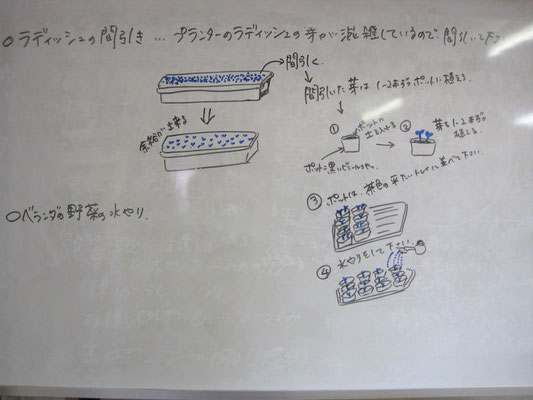 ○ラディッシュの間引き… プランターのラディッシュの芽が混雑しているので、間引いて下さい
間引く
間引いた芽は1~2本ずつポットに植える。
余裕が出来る
① ポットに土を入れる
② 芽を1~2本ずつ植える。
ポット=黒いビニール
③ ポットは、茶色の平たいトレイに並べて下さい。
○ベランダの野菜の水やり。
④ 水やりをして下さい